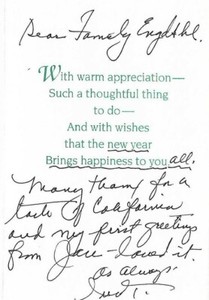 Dear Family Engdahl.
With warm appreciation—
Such a thoughtful thing
to do—
And with wishes
that the new year
Brings happiness to you all.
Many thanks for a
taste of California
and my first greetings
from Jane - loved it.
as always